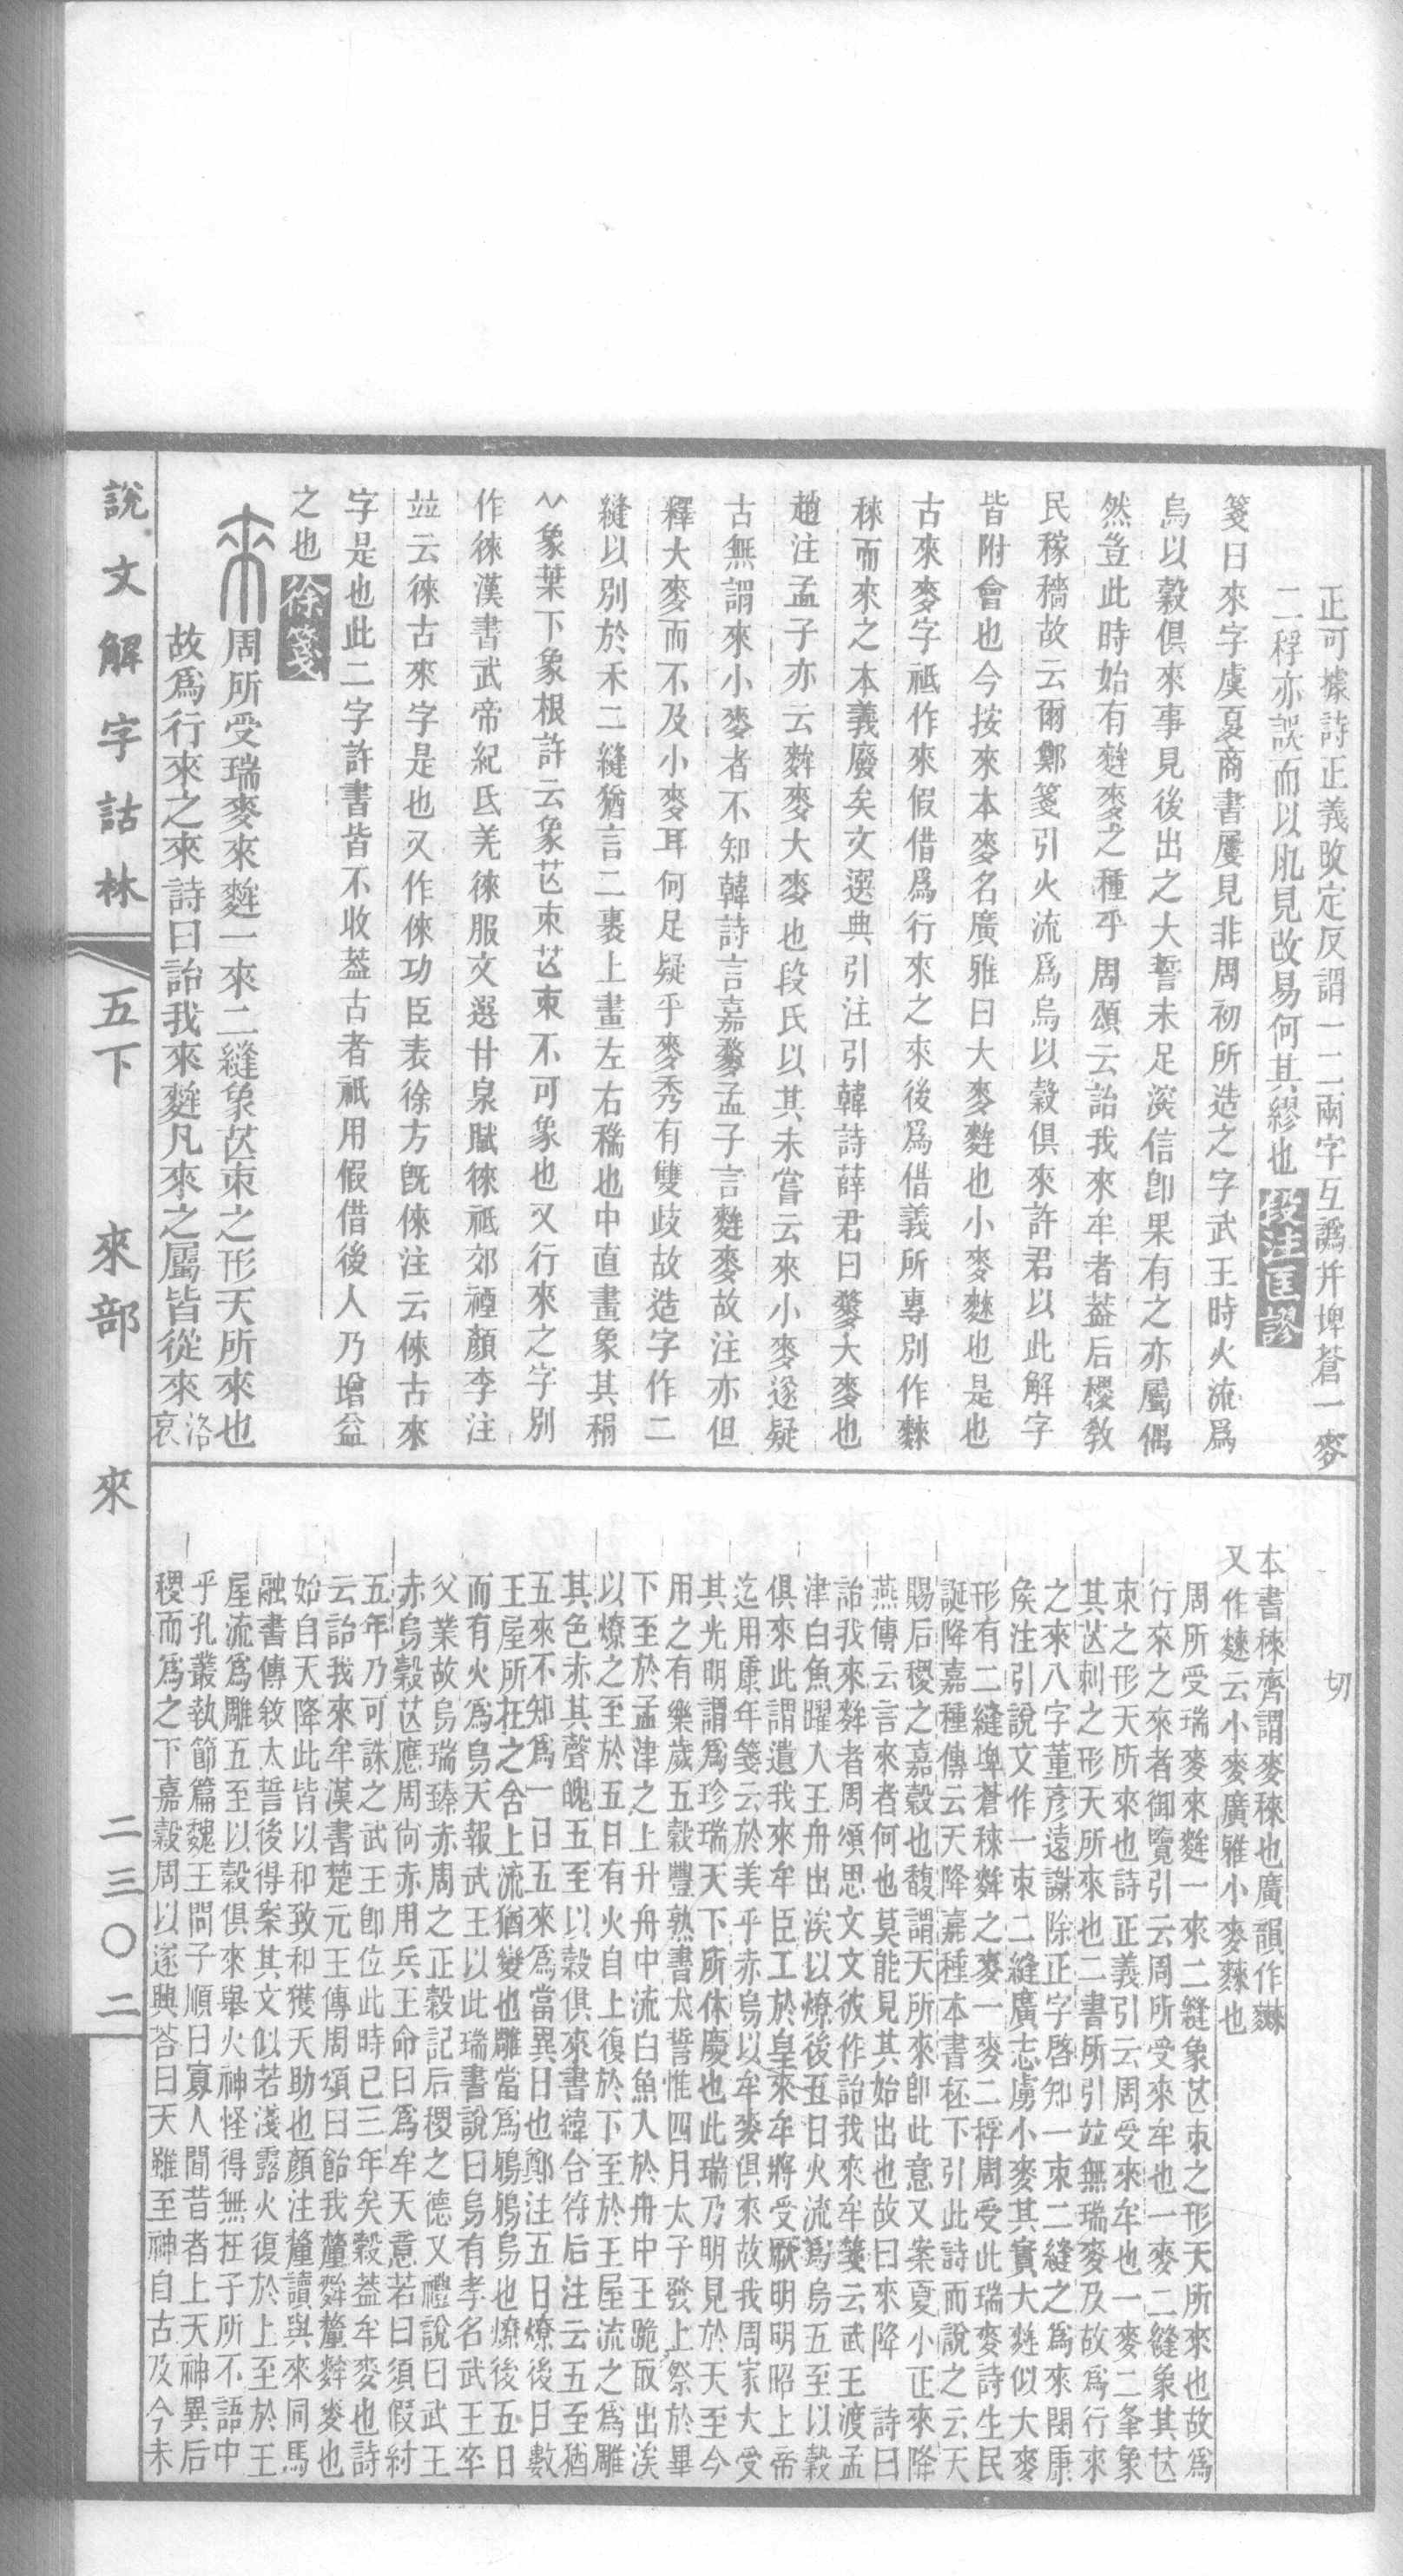 正可據詩正義攺定反謂一二兩字互譌并埤蒼一麥
二稃亦誤而以肊見改易何其繆也段注匡謬
箋曰來字虞夏商書屢見非周初所造之字武王時火流爲
烏以穀俱來事見後出之大誓未足深信卽果有之亦屬偶
然豈此時始有麰麥之種乎周頌云詒我來牟者葢后稷敎
民稼穡故云爾鄭箋引火流爲烏以穀俱來許君以此解字
皆附會也今按來本麥名廣雅曰大麥麰也小麥麳也是也
古來麥字祗作來假借爲行來之來後爲借義所專別作麳
秾而來之本義廢矣文選典引注引韓詩薛君曰麰大麥也
趙注孟子亦云麰麥大麥也段氏以其未嘗云來小麥遂疑
古無謂來小麥者不知韓詩言嘉麰孟子言麰麥故注亦但
釋大麥而不及小麥耳何足疑乎麥秀有雙歧故造字作二
縫以別於禾二縫猶言二裹上畫左右穤也中直畫象其稍
象葉下象根許云象芒朿芒朿不可象也又行來之字別
作徠漢書武帝紀氐羌徠服文選甘泉賦徠祗郊禋顏李注
竝云徠古來字是也又作倈功臣表徐方旣倈注云倈古來
字是也此二字許書皆不收葢古者祗用假借後人乃增益
之也徐箋
來周所受瑞麥來麰一來二縫象芒朿之形天所來也
故爲行來之來詩曰詒我來麰凡來之屬皆從來洛哀
切
本書秾齊謂麥秾也廣韻作麳
又作䅘云小麥廣雅小麥麳也
周所受瑞麥來麰一來二縫象芒朿之形天所來也故爲
行來之來者御覽引云周所受來牟也一麥二縫象其芒
朿之形天所來也詩正義引云周受來牟也一麥二夆象
其芒刺之形天所來也二書所引竝無瑞麥及故爲行來
之來八字董彥遠謝除正字啓知一朿二縫之爲來閒康
矦注引說文作一朿二縫廣志虜小麥其實大麰似大麥
形有二縫埤蒼秾麰之麥一麥二稃周受此瑞麥詩生民
誕降嘉種傳云天降嘉種本書秠下引此詩而說之云天
賜后稷之嘉穀也馥謂天所來卽此意又案夏小正來降
燕傳云言來者何也莫能見其始出也故曰來降 詩曰
詒我來麰者周頌思文文彼作詒我來牟箋云武王渡孟
津白魚躍入王舟出涘以燎後五日火流爲烏五至以穀
俱來此謂遺我來牟臣工於皇來牟將受厥明明昭上帝
迄用康年箋云於美乎赤烏以牟麥俱來故我周家大受
其光明謂爲珍瑞天下所休慶也此瑞乃明見於天至今
用之有樂歲五穀豐熟書太誓惟四月太子發上祭於畢
下至於孟津之上升舟中流白魚入於舟中王跪取出涘
以燎之至於五日有火自上復於下至於王屋流之爲雕
其色赤其聲魄五至以穀俱來書緯合符后注云五至猶
五來不知爲一日五來爲當異日也鄭注五日燎後日數
王屋所在之舍上流猶變也雕當爲鴉鴉烏也燎後五日
而有火爲烏天報武王以此瑞書說曰烏有孝名武王卒
父業故烏瑞臻赤周之正穀記后稷之德又禮說曰武王
赤烏穀芒應周尙赤用兵王命曰爲牟天意若曰須假紂
五年乃可誅之武王卽位此時已三年矣穀葢牟麥也詩
云詒我來牟漢書楚元王傳周頌曰飴我釐麰釐麰麥也
始自天降此皆以和致和獲天助也顏注釐讀與來同馬
融書傳敘太誓後得案其文似若淺露火復於上至於王
屋流爲雕五至以穀俱來舉火神怪得無在子所不語中
乎孔叢執節篇魏王問子順曰寡人聞昔者上天神異后
稷而爲之下嘉穀周以遂興荅曰天雖至神自古及今未
說文解字詁林 五下 來部 來 二三〇二